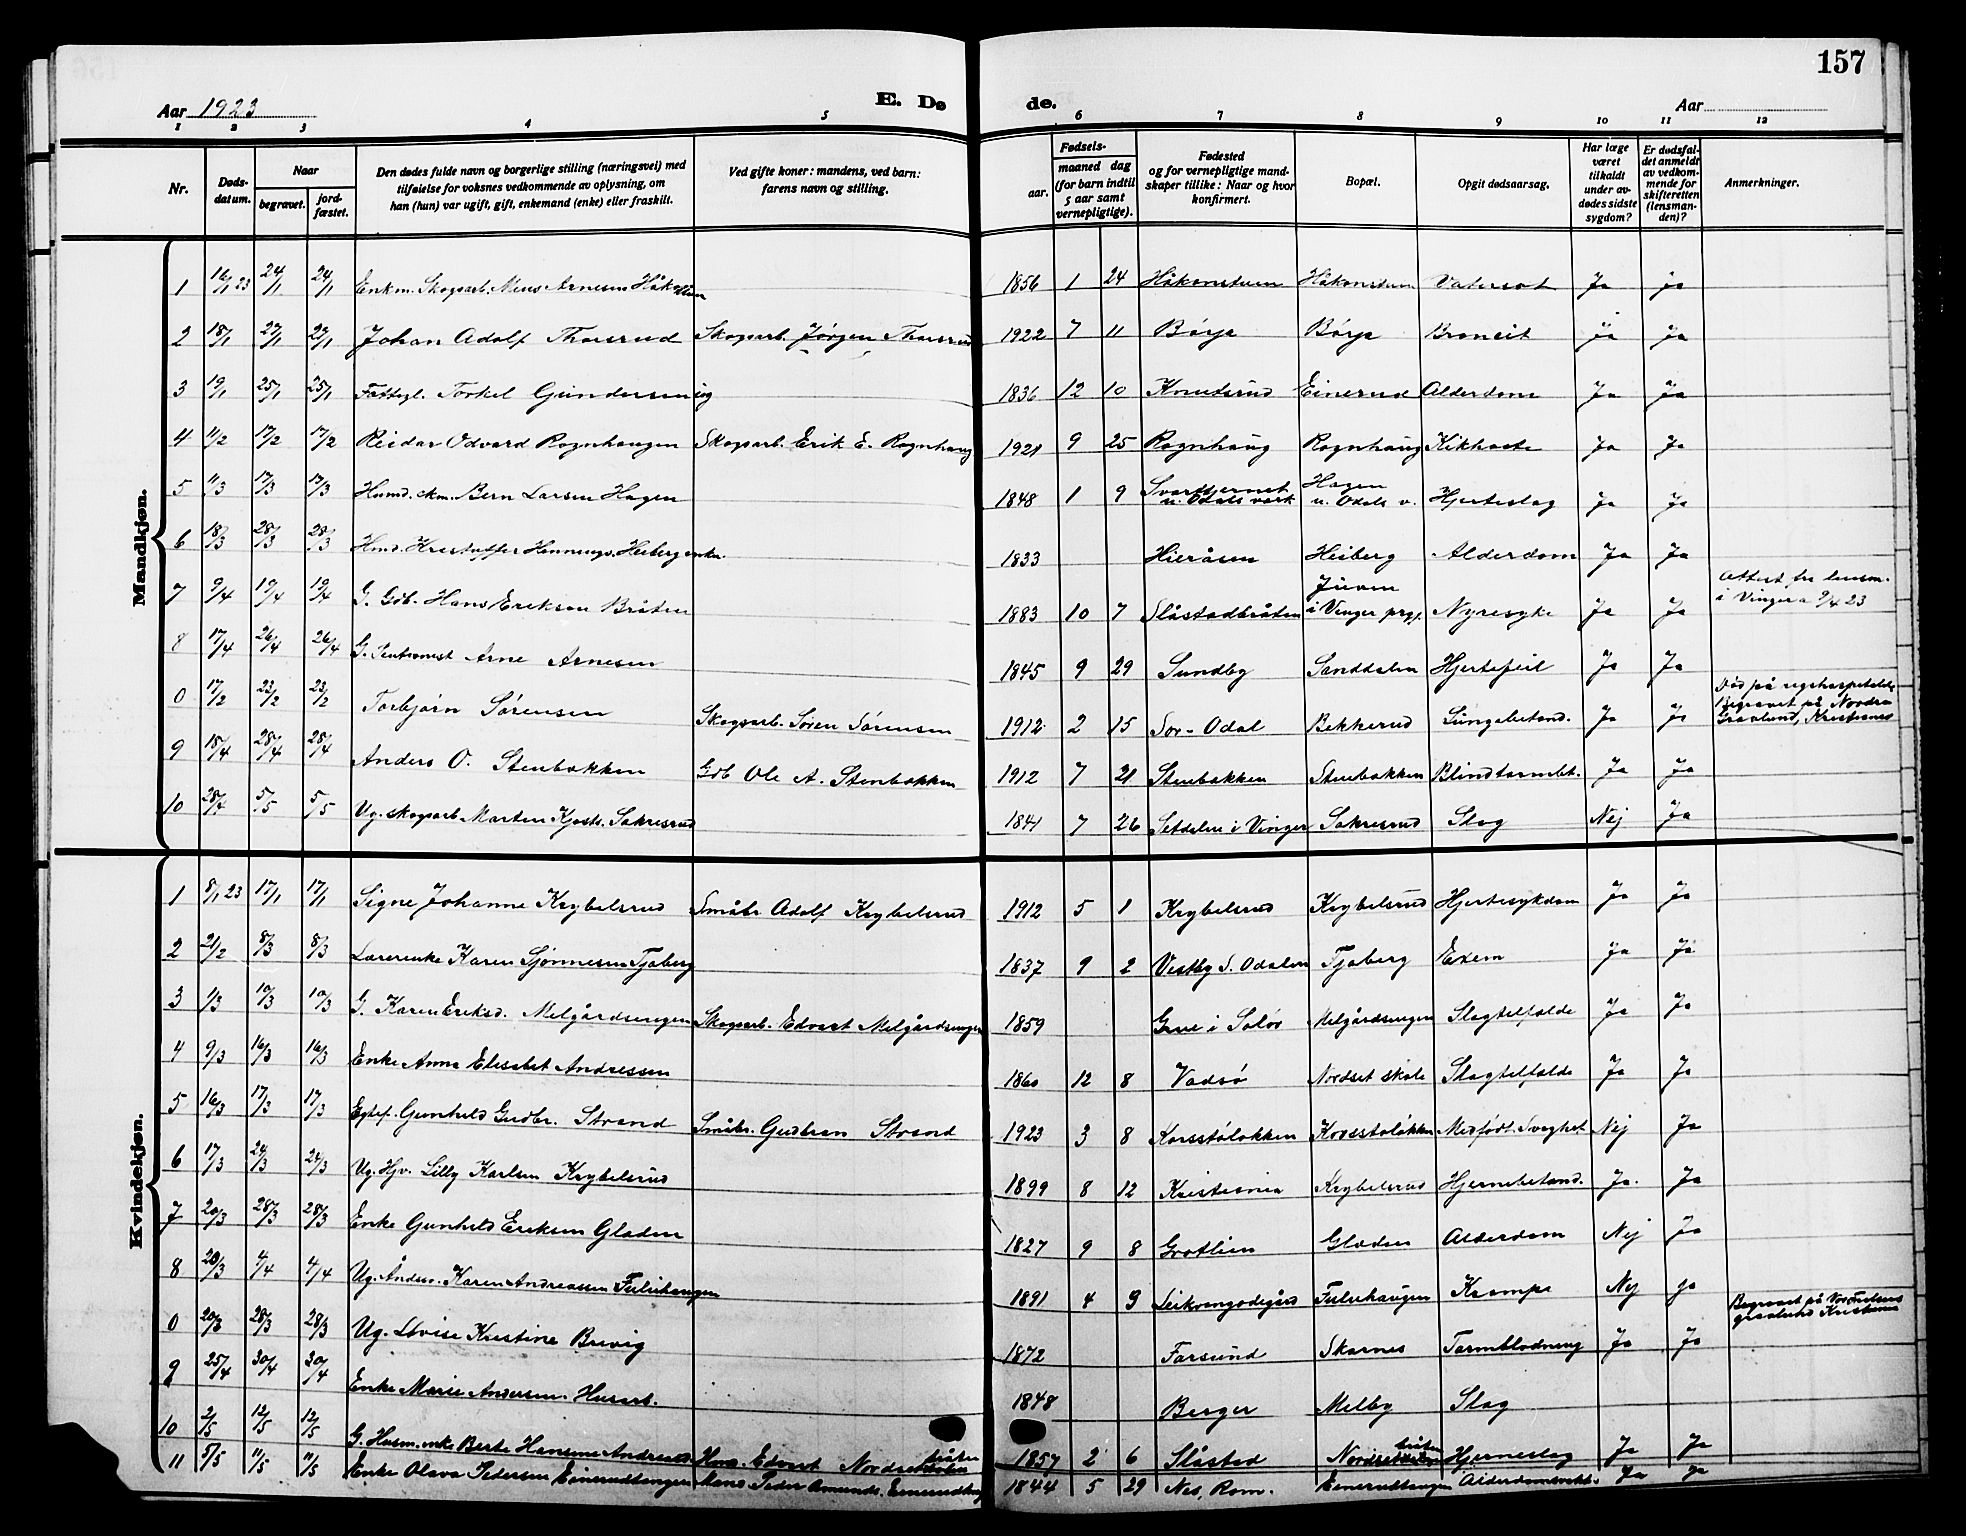 157
Aar 1923
E. Dø
de.
Aar
1 2 3 4 5 6 7 8 9 10 11 12
Nr.
Døds-
datum.
Naar
begravet.
jord-
fæstet.
Den dødes fulde navn og borgerlige stilling (næringsvei) med
tilføielse for voksnes vedkommende av oplysning, om
han (hun) var ugift, gift, enkemand (enke) eller fraskilt.
Ved gifte koner: mandens, ved barn:
farens navn og stilling.
Fødsels-
aar.
maaned dag
(for barn indtil
5 aar samt
vernepligtige).
Fødested
og for vernepligtige mand-
skaper tillike: Naar og hvor
konfirmert.
Bopæl.
Opgit dødsaarsag.
Har læge
været
tilkaldt
under av-
dødes sidste
sygdom?
Er dødsfal-
det anmeldt
av vedkom-
mende for
skifteretten
(lensman-
den)?
Anmerkninger.
Mandkjøn.
1 16/1 23 24/1 24/1 Enkm. Skogsarb. Mens Arnesen Håkonstuen 1856 1 24 Håkonstuen Håkonstuen Vatersot Ja Ja
2 18/1 27/1 27/1 Johan Adolf Thorsrud Skogsarb. Jørgen Thorsrud 1922 7 11 Børja Børja Broncit Ja Ja
3 19/1 25/1 25/1 Fattigl. Torkel Gundersen ug 1836 12 10 Knutsrud Einerud Alderdom Ja Ja
4 11/2 17/2 17/2 Reidar Odvard Rognhaugen Skogsarb. Erik E. Rognhaug 1921 9 25 Rognhaug Rognhaug Kikhoste Ja Ja
5 11/3 17/3 17/3 Husmd. ekm. Bern Larsen Hagen 1848 1 9 Svarttjernet u. Odals verk Hagen u. Odals v. Hjerteslag Ja Ja
6 18/3 28/3 28/3 Hmd. Kristoffer Hennings. Heiberg enkm. 1833 Hieråsen Heiberg Alderdom Ja Ja
7 9/4 19/4 19/4 G. Gdb. Hans Eriksen Bråten 1883 10 7 Slåstadbråten Juven i Vinger prgj. Nyresyke Ja Ja Attest fra lensm. i Vinger a 9/4 23
8 17/4 26/4 26/4 G. Arne Arnesen 1845 9 29 Sundby Sanddalen Hjertefeil Ja Ja
0 17/2 23/2 23/2 Torbjørn Sørensen Skogsarb. Søren Sørensen 1912 2 15 Sør-Odal Bekkerud Lungebetænd. Ja Ja Død på rigshospitalet. Begravet på Nordre Gravlund, Kristiania
9 18/4 28/4 28/4 Anders O. Stenbakken Gdb Ole A. Stenbakken 1912 7 21 Stenbakken Stenbakken Blindtarmbt. Ja Ja
10 28/4 5/5 5/5 Ug. skogsarb. Marten Kjosts. Sakresrud 1841 7 26 Setdalen i Vinger Sakresrud Slag Nej Ja
Kvindekjøn.
1 8/1 23 17/1 17/1 Signe Johanne Krybelsrud Småbr. Adolf Krybelsrud 1912 5 1 Krybelsrud Krybelsrud Hjertesykdom Ja Ja
2 21/2 8/3 8/3 Lærerenke Karen Sjønnesen Tjaberg 1837 9 2 Vestby S. Odalen Tjaberg Exem Ja Ja
3 1/3 10/3 10/3 G. Karen Eriksd. Melgårdsengen Skogsarb. Edvart Melgårdsengen 1859 Grue i Solør Melgårdsengen Slagtilfælde Ja Ja
4 9/3 16/3 16/3 Enke Anna Elisabet Andressen 1860 12 8 Vadsø Nordset skole Slagtilfælde Ja Ja
5 16/3 17/3 17/3 Gunhild Gudbr. Strand Småbr. Gudbran Strand 1923 3 8 Korsstoløkken Korsstoløkken Medfødt Svaghet Nej Ja
6 17/3 24/3 24/3 Ug. Hjv. Lilly Karlsen Krybelsrud 1899 8 12 Kristiania Krybelsrud Hjernebetænd. Ja. Ja
7 20/3 28/3 28/3 Enke Gunhild Eriksen Gladen 1827 9 8 Grotlien Gladen Alderdom Nej Ja
8 20/3 4/4 4/4 Ug. Karen Andreassen Fulsehaugen 1891 4 9 Leikvangodegård Fulsehaugen Krampe Nej Ja
0 20/3 28/3 28/3 Ug. Lovise Kristine Brevig 1872 Farsund Skarnes Tarmblødning Ja Ja Begravet på gravlund Kristiania
9 25/4 30/4 30/4 Enke Marie Andersen. Husarb. 1848 Berger Melby Slag
10 2/5 12/5 12/5 G. Husm.enke Berte Hansine Andreasd. Hmd. Edvart Nordset 1857 2 6 Slåstad Nordset Hjerneslag Ja Ja
11 5/5 11/5 11/5 Enke Olava Pedersen Einerudtangen Peder Amunds. Einerudtang 1844 5 29 Nes, Rom. Einerudtangen Alderdomsvekk. Ja Ja